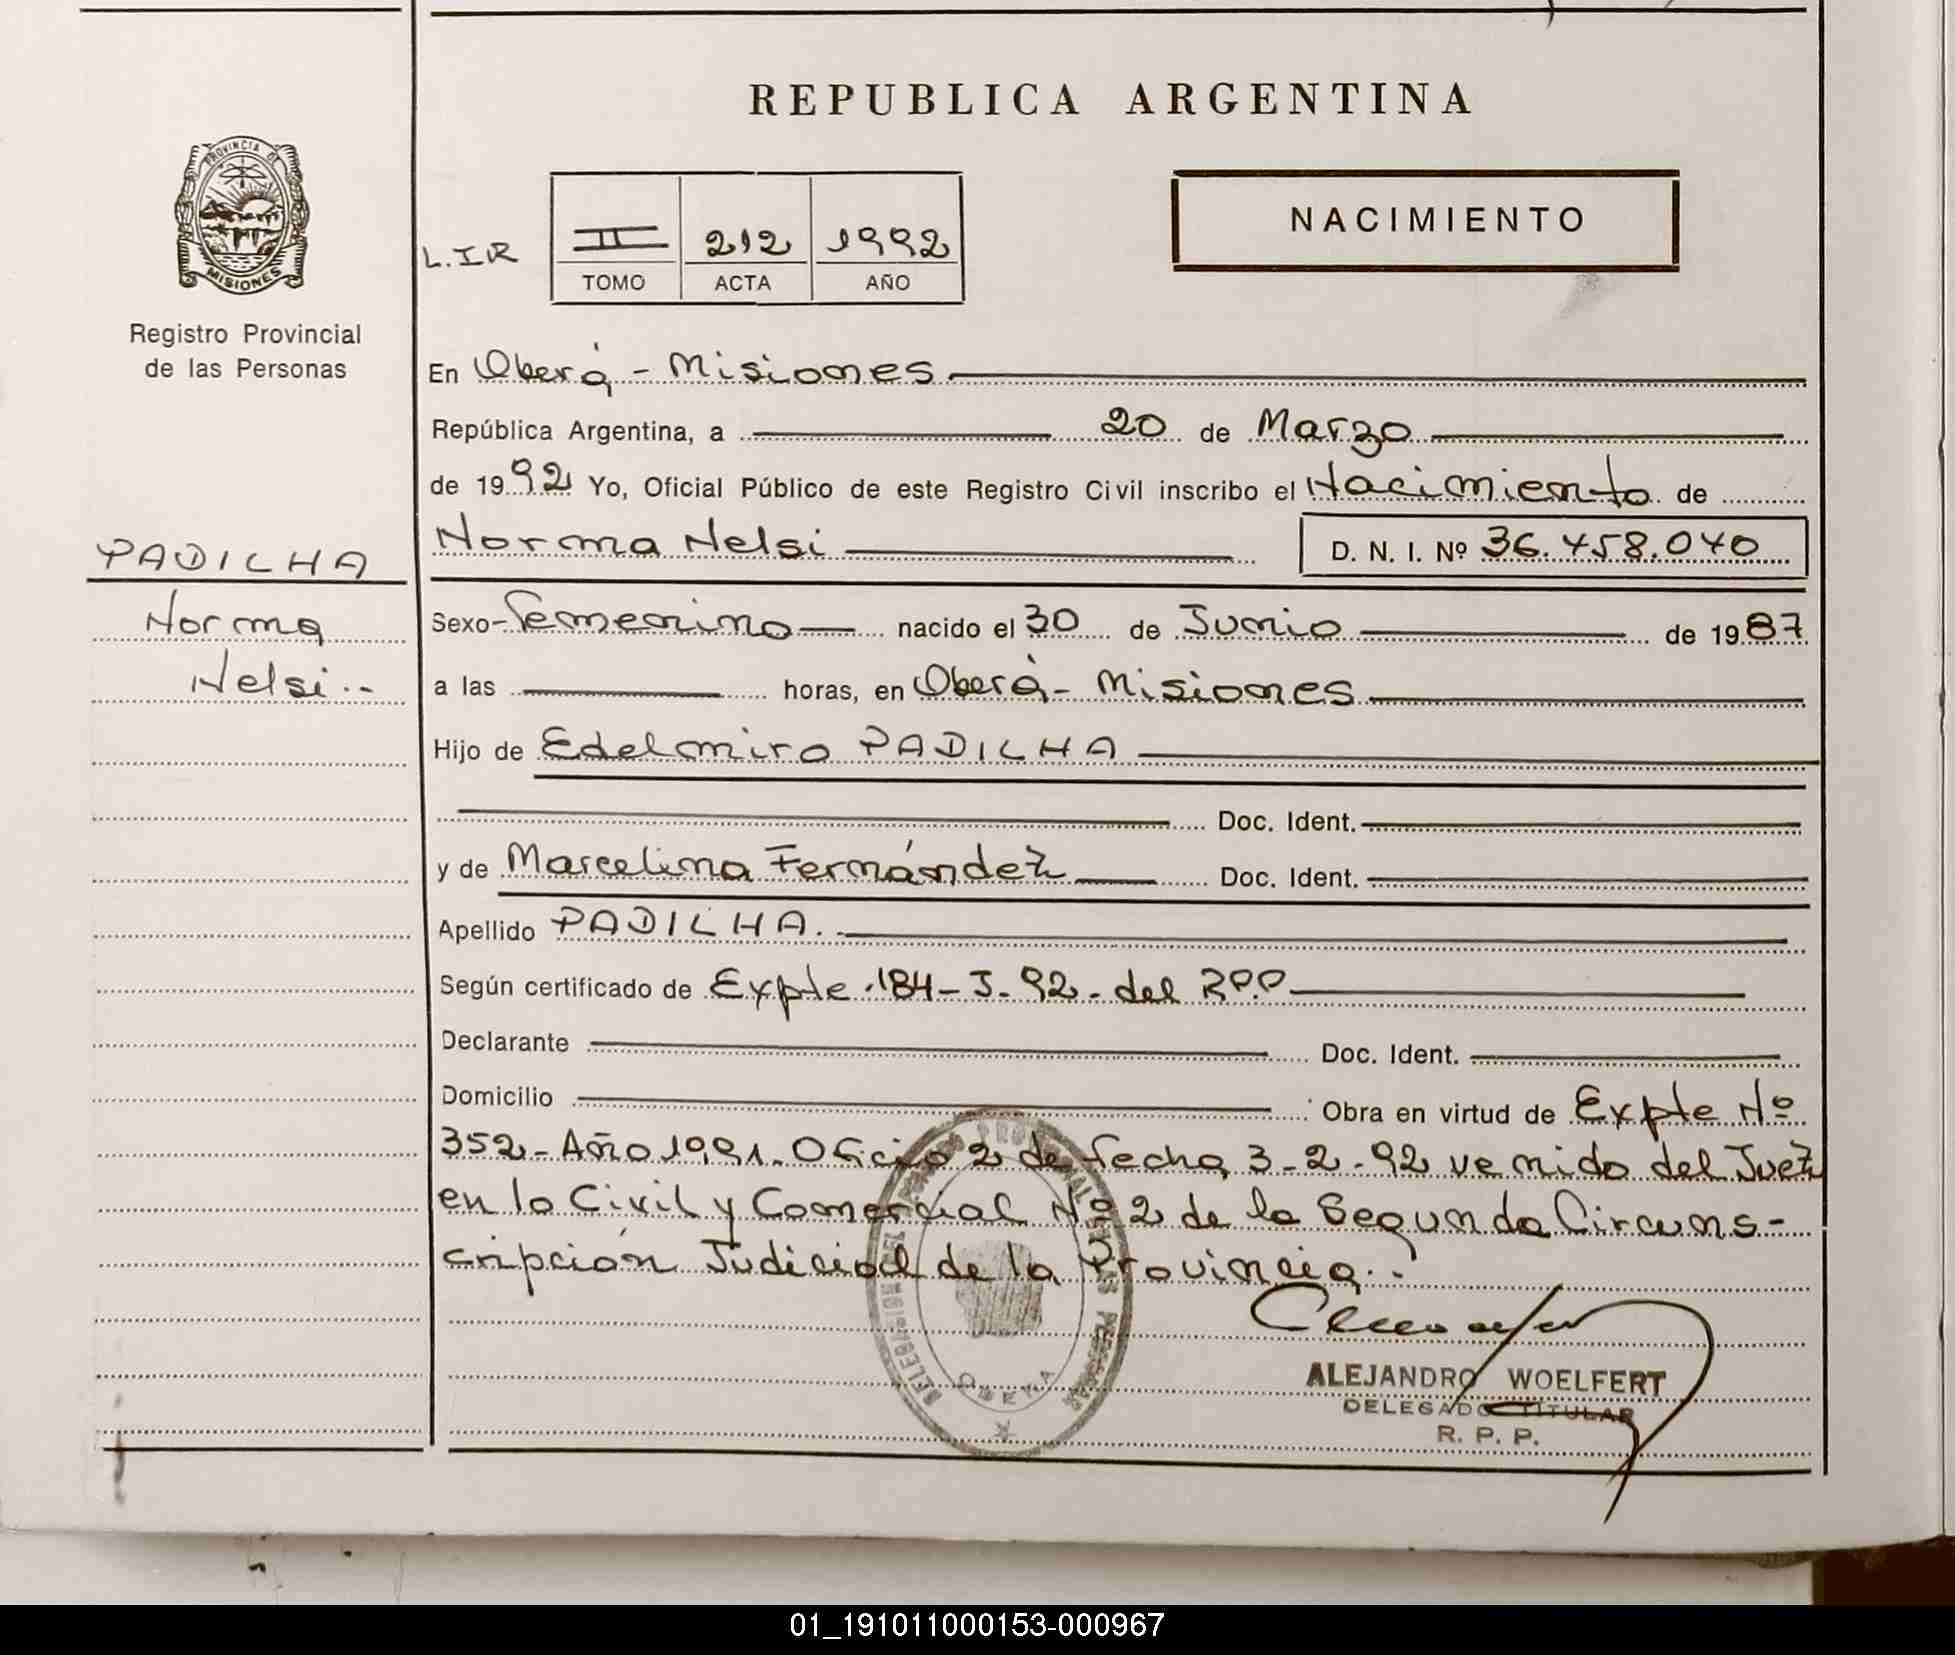 REPUBLICA ARGENTINA
PROVINCIA DE
MISIONES
Registro Provincial
de las Personas
NACIMIENTO
L.I.R
II 212 1992
TOMO ACTA AÑO
En Oberá - Misiones
República Argentina, a 20 de Marzo
de 1992 Yo, Oficial Público de este Registro Civil inscribo el Nacimiento de
PADILHA
Norma
Nelsi..
Norma Nelsi D. N. I. Nº 36.458.040
Sexo Femenino nacido el 30 de Junio de 1987
a las horas, en Oberá - Misiones
Hijo de Edelmiro PADILHA
Doc. Ident.
y de Marcelina Fernández Doc. Ident.
Apellido PADILHA.
Según certificado de Expte. 184-J-92- del RPP
Declarante Doc. Ident.
Domicilio Obra en virtud de Expte Nº
352- Año 1991. Oficio 2 de fecha 3-2-92 venido del Juez
en lo Civil y Comercial Nº 2 de la Segunda Circuns-
cripción Judicial de la Provincia..
OBERA
ALEJANDRO WOELFERT
DELEGADO TITULAR
R. P. P.
01_191011000153-000967